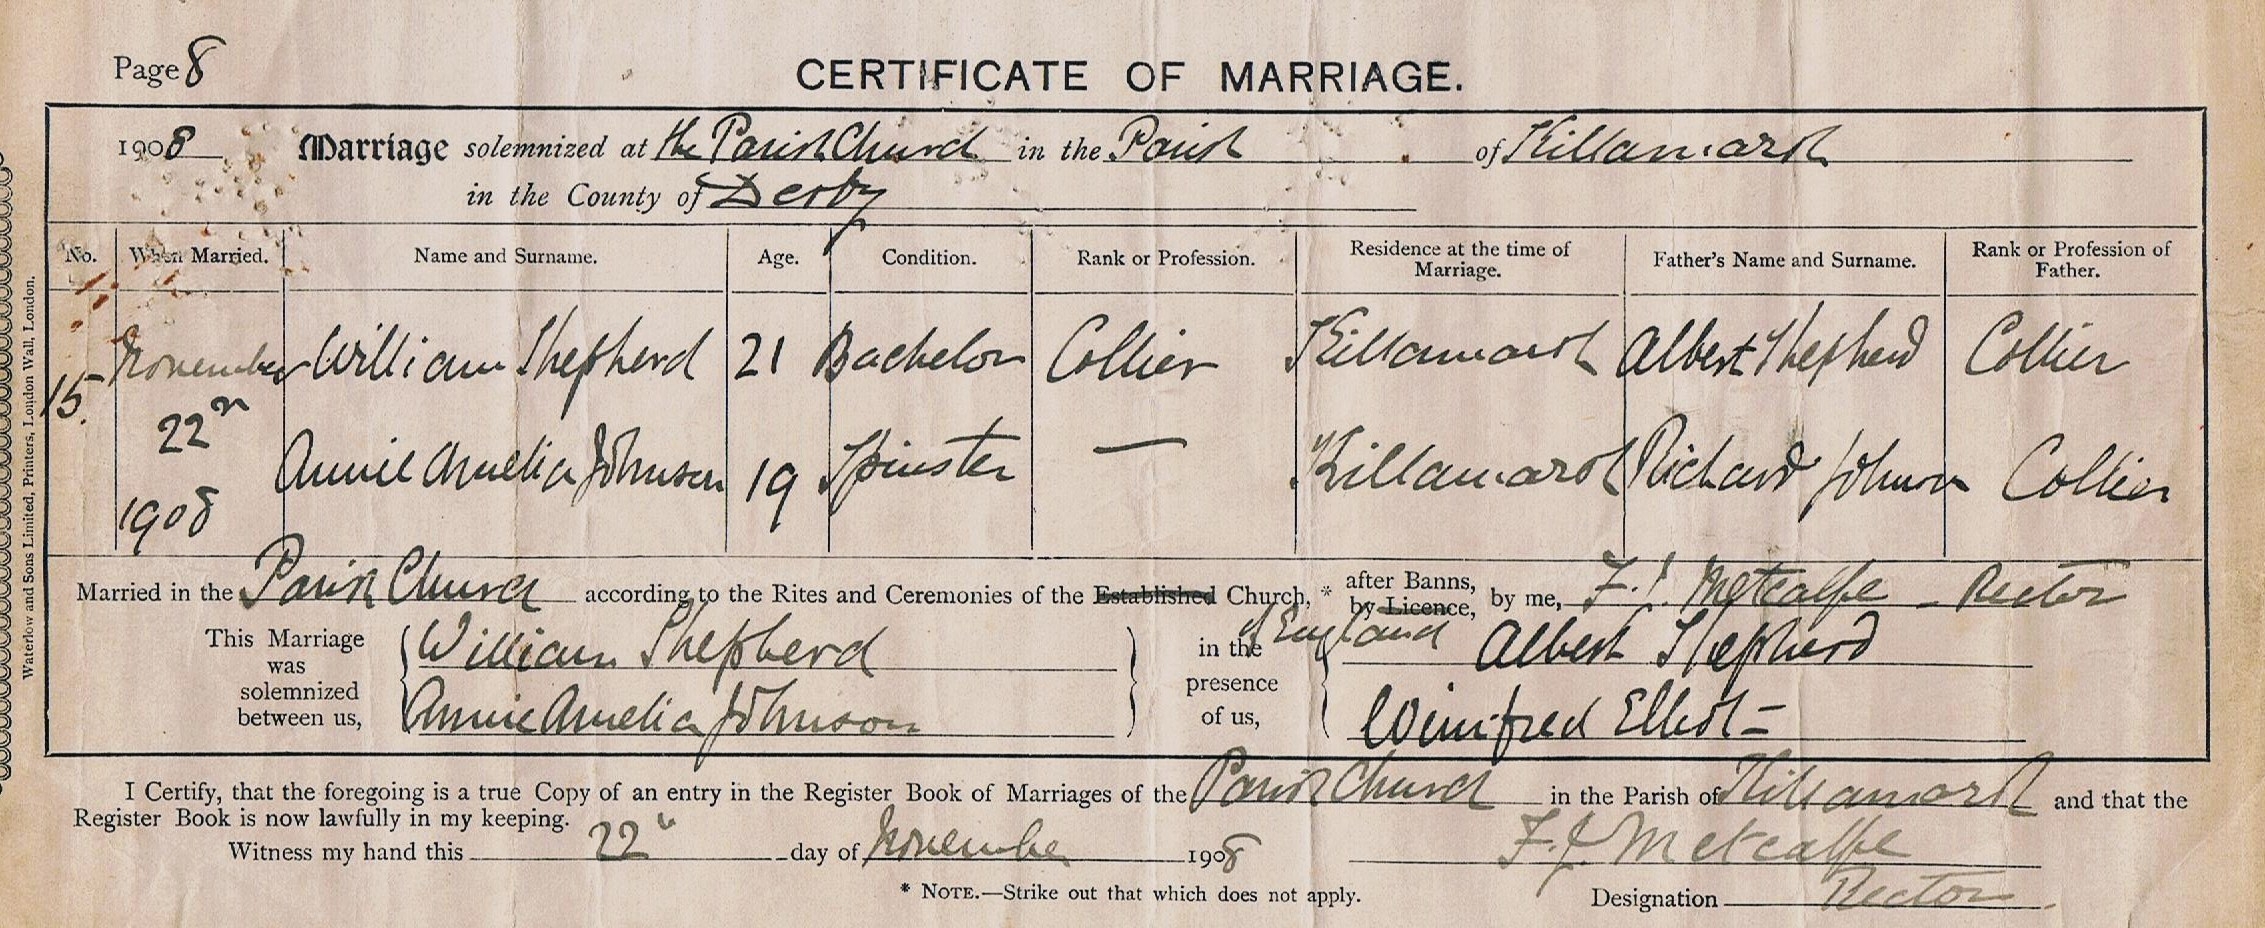 Page 8
CERTIFICATE OF MARRIAGE.
1908 Marriage solemnized at the Parish Church in the Parish of Killamarsh
in the County of Derby
No. When Married. Name and Surname. Age. Condition. Rank or Profession. Residence at the time of Marriage. Father's Name and Surname. Rank or Profession of Father.
15. November 22n 1908 William Shepherd 21 Bachelor Collier Killamarsh Albert Shepherd Collier
Annie Amelia Johnson 19 Spinster — Killamarsh Richard Johnson Collier
Married in the Parish Church according to the Rites and Ceremonies of the Established Church, * of England after Banns, by Licence, by me, F. J. Metcalfe - Rector
This Marriage was solemnized between us, William Shepherd in the presence of us, Albert Shepherd
Annie Amelia Johnson Winifred Elliot
I Certify, that the foregoing is a true Copy of an entry in the Register Book of Marriages of the Parish Church in the Parish of Killamarsh and that the
Register Book is now lawfully in my keeping.
Witness my hand this 22" day of November 1908 F. J. Metcalfe
* NOTE.—Strike out that which does not apply. Designation Rector
Waterlow and Sons Limited, Printers, London Wall, London.